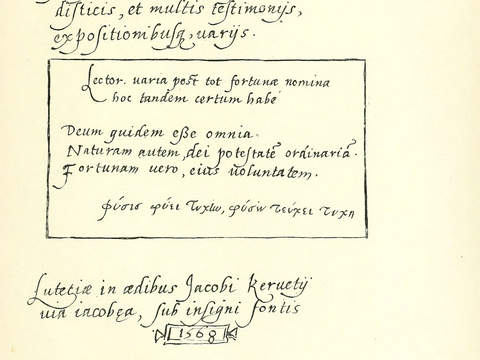 disticis, et multis testimonijs,
expositionibusq, varijs.
Lector. varia post tot fortunæ nomina
hoc tandem certum habe
Deum quidem esse omnia.
Naturam autem, dei potestatē ordinariā.
Fortunam vero, eius voluntatem.
φύσις φύει τυχίω, φύσιν τεύχει τυχη
Lutetiæ in ædibus Jacobi Keruetij
uia iacobęa, sub insigni fontis
1568